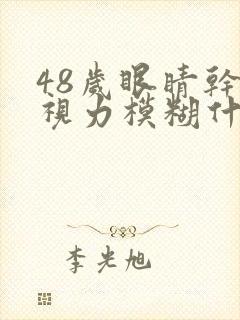 48歲眼睛幹
視力模糊什
李光旭